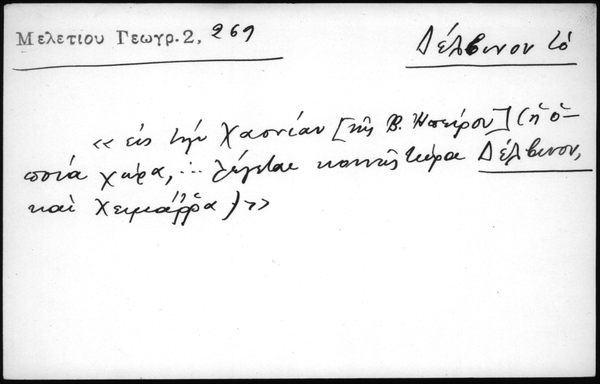 Μελετίου Γεωγρ.2, 269
Δέλβινον τό
«εἰς τὴν Χαονίαν [τῆς Β. Ἠπείρου] (ἡ ὁ-
ποία χώρα, ... λέγεται κοινῶς τώρα Δέλβινον,
καὶ Χειμάῤῥα)»